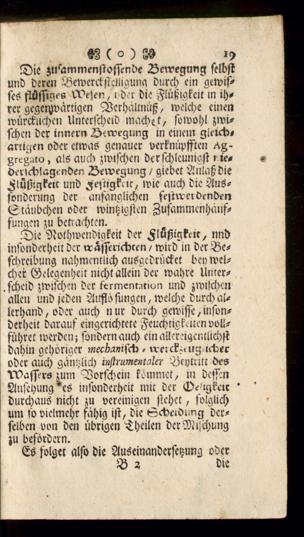 ( o ) 19
Die zusammenstossende Bewegung selbst
und deren Bewerckstelligung durch ein gewis-
ses flüssiges Wesen, oder die Flüßigkeit in ih-
rer gegenwärtigen Verhältnüß, welche einen
würcklichen Unterscheid machet, sowohl zwi-
schen der innern Bewegung in einem gleich-
artigen oder etwas genauer verknüpfften Ag-
gregato, als auch zwischen der schleunigst nie-
derschlagenden Bewegung/ giebet Anlaß die
Flüßigkeit und Festigkeit, wie auch die Aus-
sonderung der anfänglichen festwerdenden
Stäubchen oder wintzigsten Zusammenhäuf-
fungen zu betrachten.
Die Nothwendigkeit der Flüßigkeit, und
insonderheit der wässerichten/ wird in der Be-
schreibung nahmentlich ausgedrücket bey wel-
cher Gelegenheit nicht allein der wahre Unter-
scheid zwischen der fermentation und zwischen
allen und jeden Auflösungen, welche durch al-
lerhand, oder auch nur durch gewisse, inson-
derheit darauf eingerichtete Feuchtigkeiten voll-
führet werden; sondern auch ein allereigentlichst
dahin gehöriger mechanisch-werckzeuglicher
oder auch gäntzlich instrumentaler Beytritt des
Wassers zum Vorschein kömmet, in dessen
Ansehung es insonderheit mit der Oeligkeit
durchaus nicht zu vereinigen stehet, folglich
um so vielmehr fähig ist, die Scheidung der-
selben von den übrigen Theilen der Mischung
zu befördern.
Es folget also die Auseinandersetzung oder
B 2 die